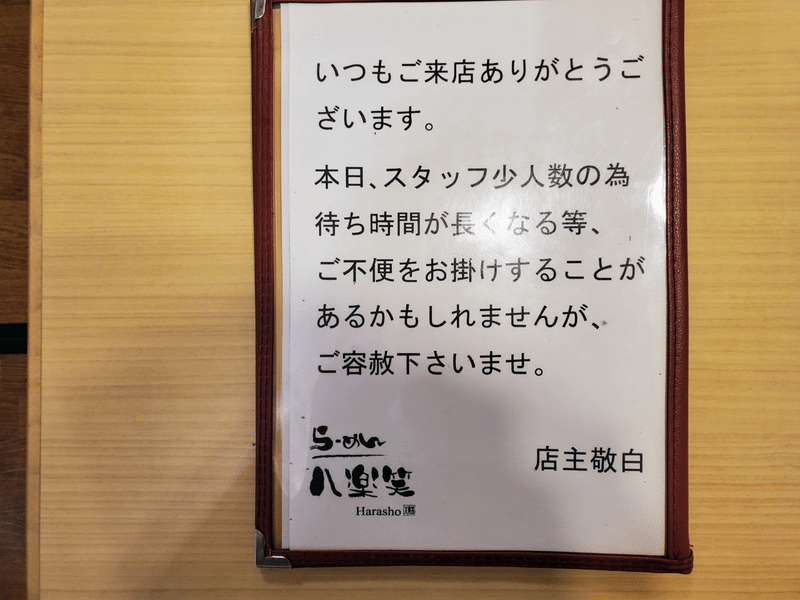 いつもご来店ありがとうご
ざいます。
本日、スタッフ少人数の為
待ち時間が長くなる等、
ご不便をお掛けすることが
あるかもしれませんが、
ご容赦下さいませ。
店主敬白
らーめん
八楽笑
Harasho